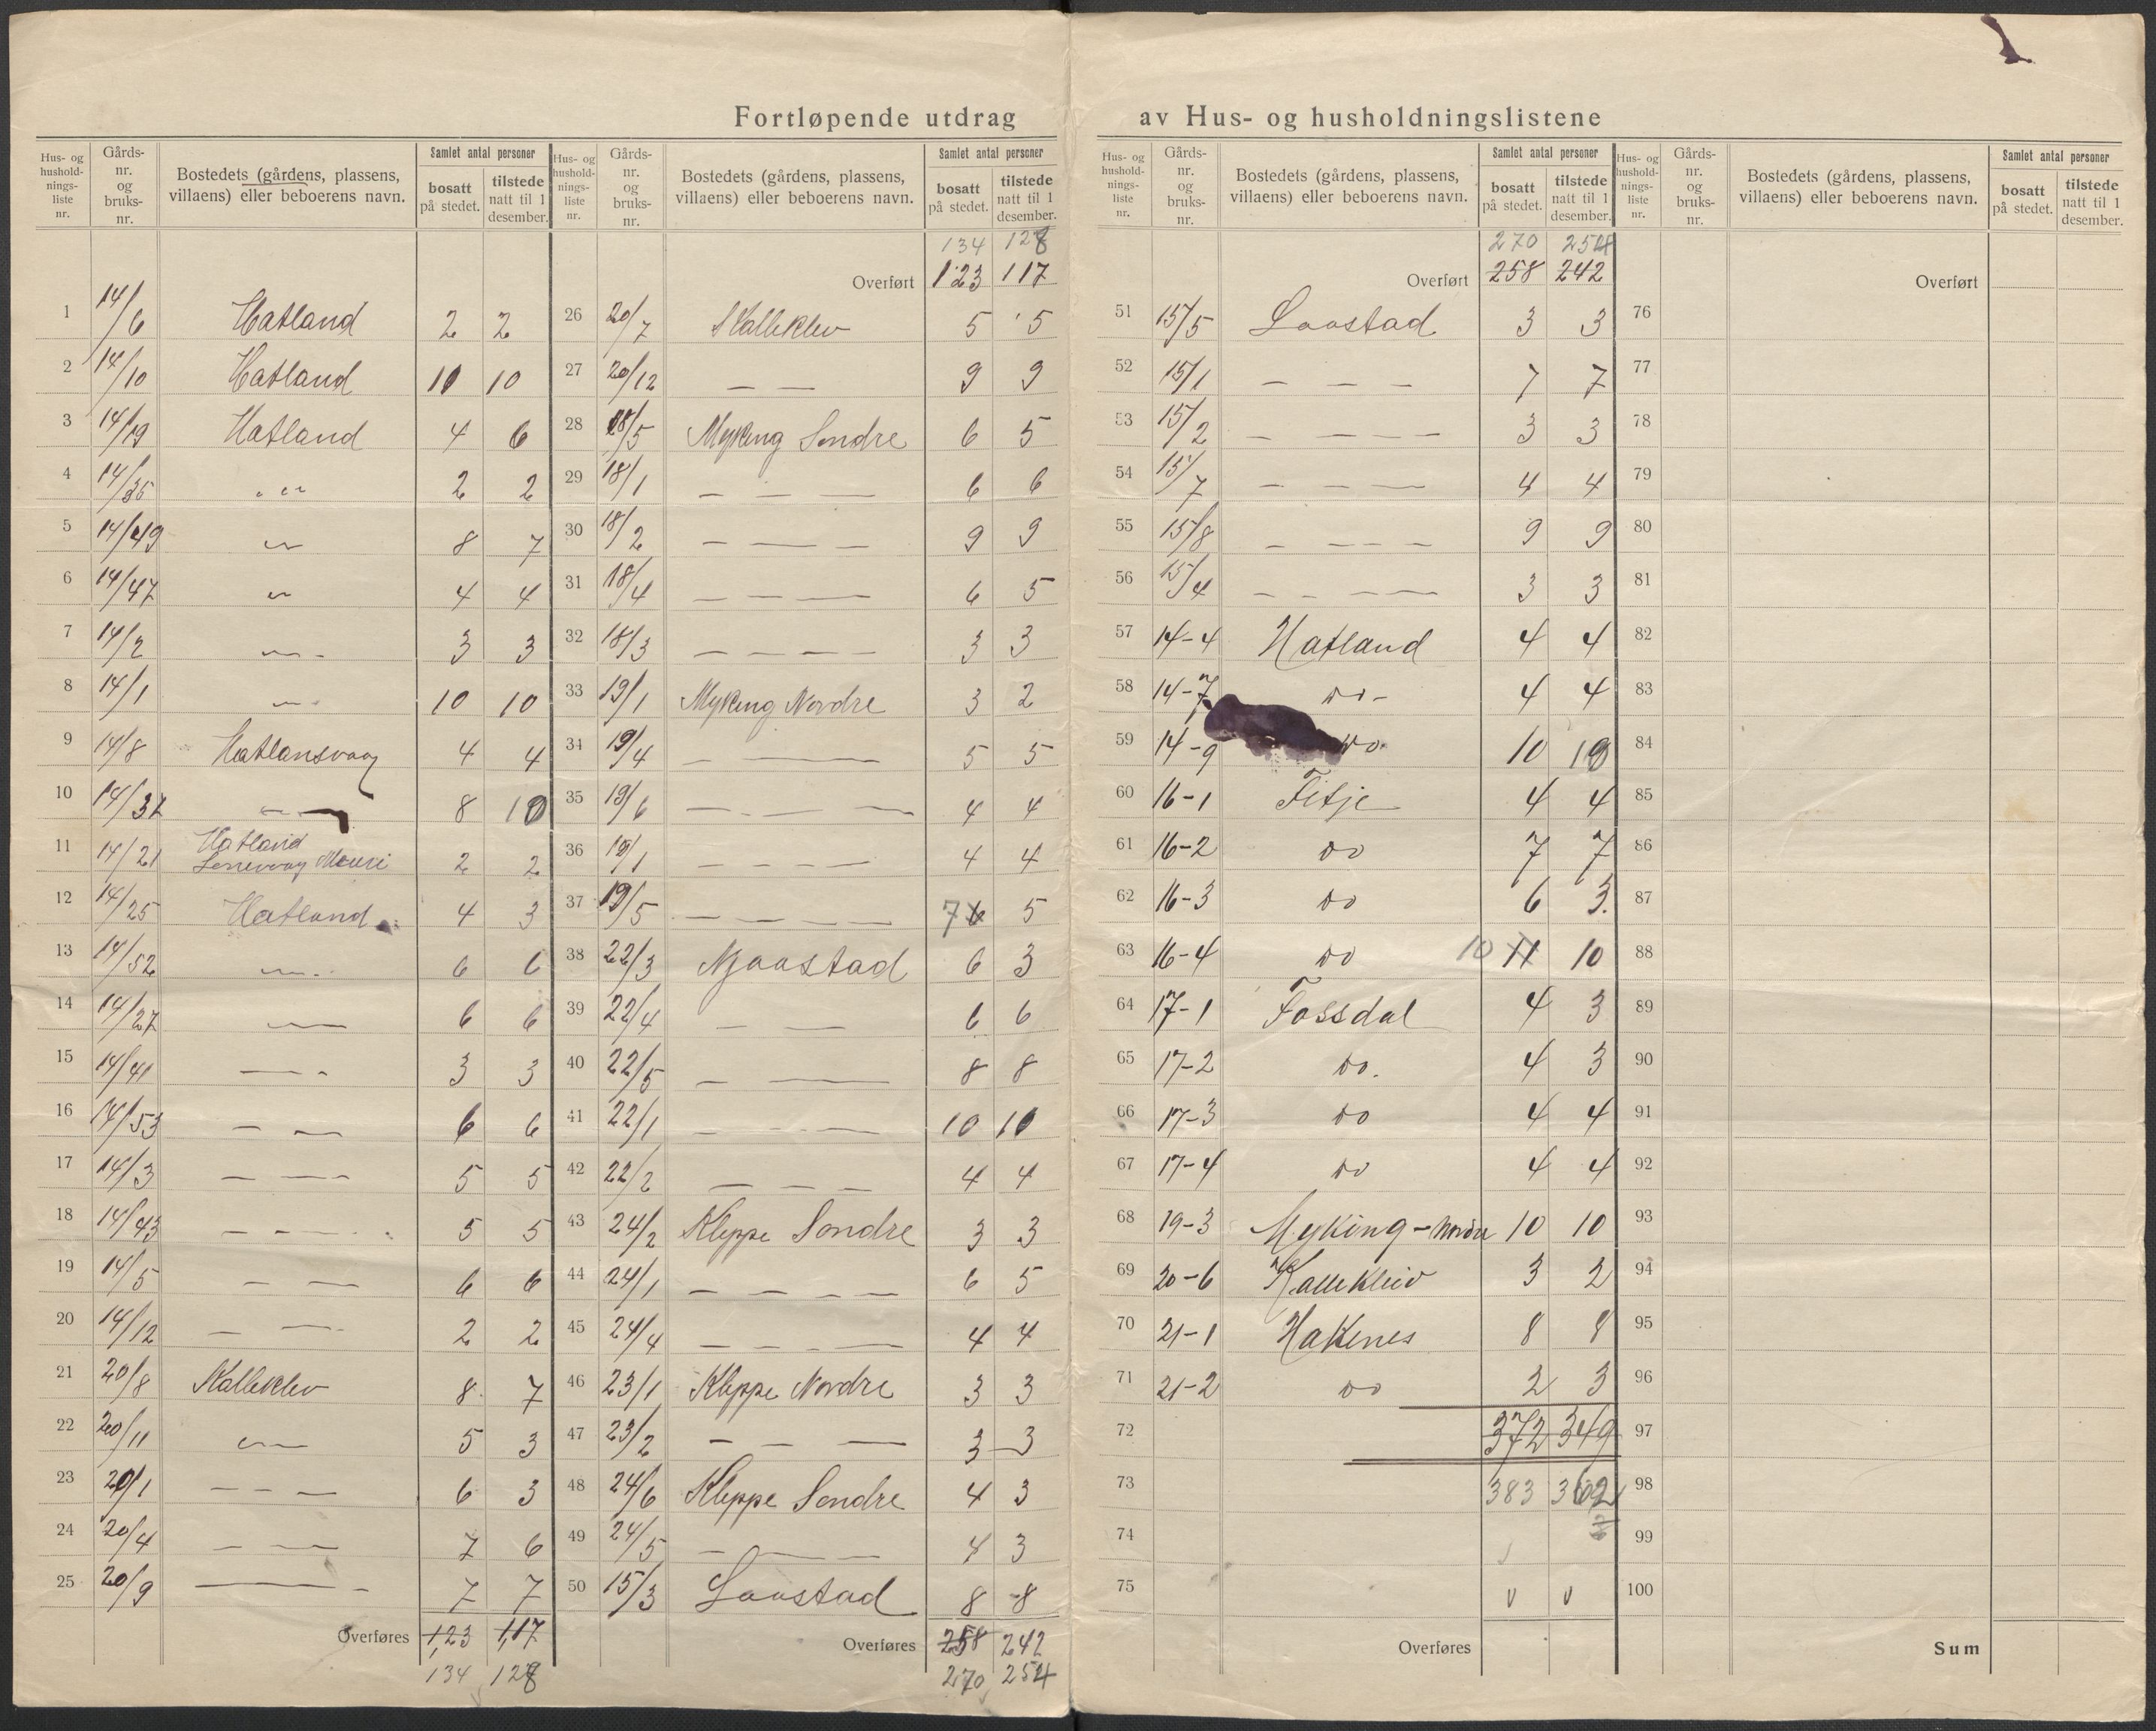 Fortløpende utdrag av Hus- og husholdningslistene
Hus- og hushold-nings-liste nr. Gårds-nr. og bruks-nr. Bostedets (gårdens, plassens, villaens) eller beboerens navn. Samlet antal personer bosatt på stedet. tilstede natt til 1 desember.
1 14/6 Hatland 2 2
2 14/10 Hatland 10 10
3 14/19 Hatland 4 6
4 14/35 " 2 2
5 14/49 " 8 7
6 14/47 " 4 4
7 14/2 " 3 3
8 14/1 " 10 10
9 14/8 Hatlansvaag 4 4
10 14/37 — 8 10
11 14/21 Hatland 2 2
12 14/25 Hatland 4 3
13 14/52 — 6 6
14 14/27 — 6 6
15 14/41 — 3 3
16 14/53 — — 6 6
17 14/3 — — 5 5
18 14/43 — — — 5 5
19 14/5 — — 6 6
20 14/12 — — 2 2
21 20/8 Kalleklev 8 7
22 20/11 — 5 3
23 20/1 — — — 6 3
24 20/4 — — 7 6
25 20/9 — — 7 7
Overføres 123 117
134 128
Hus- og hushold-nings-liste nr. Gårds-nr. og bruks-nr. Bostedets (gårdens, plassens, villaens) eller beboerens navn. Samlet antal personer bosatt på stedet. tilstede natt til 1 desember.
134 128
Overført 123 117
26 20/7 Kalleklev 5 5
27 20/12 — — 9 9
28 18/5 Myking Sondre 6 5
29 18/1 — — — 6 6
30 18/2 — — — 9 9
31 18/4 — — — 6 5
32 18/3 — — — — 3 3
33 19/1 Myking Nordre 3 2
34 19/4 — — 5 5
35 19/6 — — — 4 4
36 19/1 — — — — 4 4
37 19/5 — — — — 7 6 5
38 22/3 Njaastad 6 3
39 22/4 — — 6 6
40 22/5 — — 8 8
41 22/1 — — — 10 10
42 22/2 — — — 4 4
43 24/2 Kleppe Sondre 3 3
44 24/1 — — — — 6 5
45 24/4 — — — — 4 4
46 23/1 Kleppe Nordre 3 3
47 23/2 — — — 3 3
48 24/6 Kleppe Sondre 4 3
49 24/5 — — — 4 3
50 15/3 Loostad 8 8
Overføres 258 242
270 254
Hus- og hushold-nings-liste nr. Gårds-nr. og bruks-nr. Bostedets (gårdens, plassens, villaens) eller beboerens navn. Samlet antal personer bosatt på stedet. tilstede natt til 1 desember.
270 254
Overført 258 242
51 15/5 Loostad 3 3
52 15/1 — — — 7 7
53 15/2 — — — — 3 3
54 15/7 — — — 4 4
55 15/8 — — — — 9 9
56 15/4 — — — — 3 3
57 14-4 Hatland 4 4
58 14-7 do- 4 4
59 14-9 do. 10 10
60 16-1 Fitje 4 4
61 16-2 do 7 7
62 16-3 do 6 3.
63 16-4 do 10 11 10
64 17-1 Fossdal 4 3
65 17-2 do. 4 3
66 17-3 do 4 4
67 17-4 do 4 4
68 19-3 Myking-Nordre 10 10
69 20-6 Kallekleiv 3 2
70 21-1 Hakenes 8 8
71 21-2 do 2 3
72 372 349
73 383 362
74
75
Overføres
Hus- og hushold-nings-liste nr. Gårds-nr. og bruks-nr. Bostedets (gårdens, plassens, villaens) eller beboerens navn. Samlet antal personer bosatt på stedet. tilstede natt til 1 desember.
Overført
76
77
78
79
80
81
82
83
84
85
86
87
88
89
90
91
92
93
94
95
96
97
98
99
100
Sum